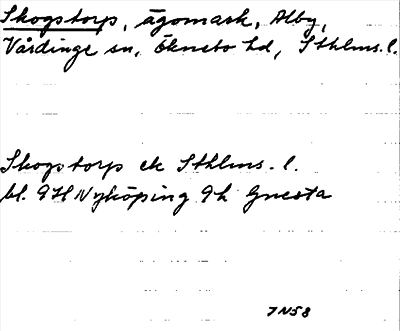 Skogstorp, ägomark, Alby,
Vårdinge sn, Öknebo hd, Sthlms. l.
Skogstorp ek Sthlms. l.
bl. 9H Nyköping 9h Gnesta
JN58